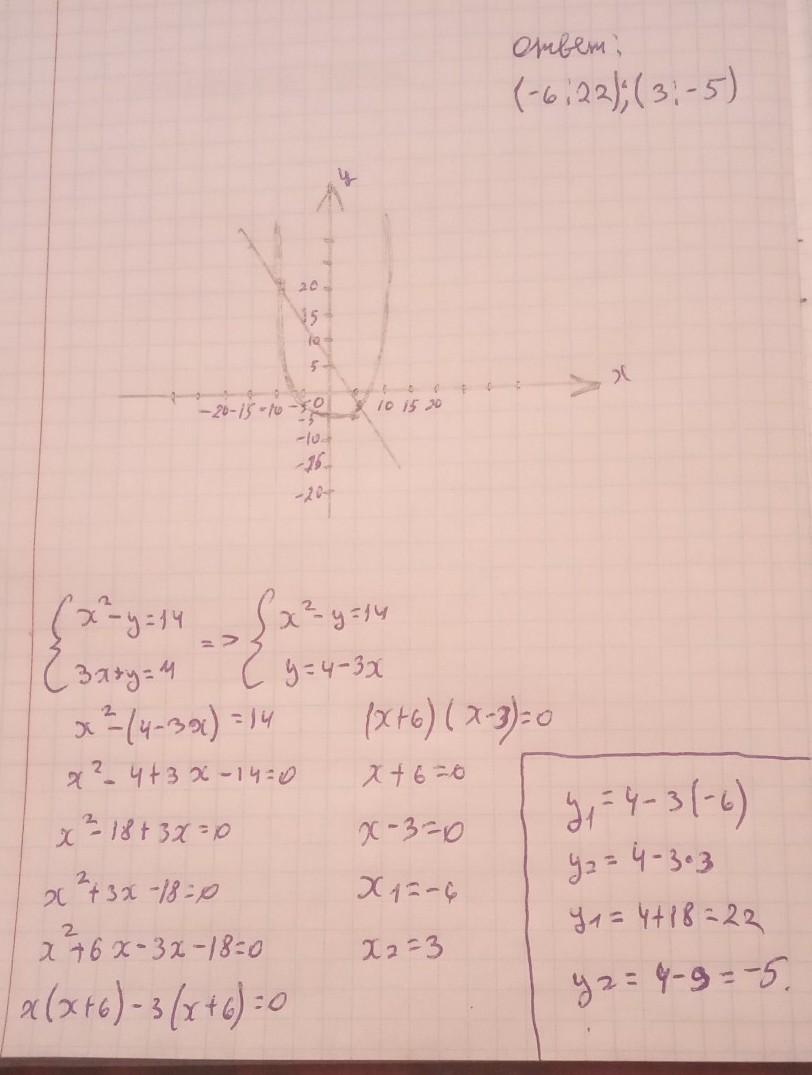 ответ:
(-6;22);(3;-5)
y
20
15
10
5
x
-20 -15 -10 -5 0 10 15 20
-5
-10
-15
-20
{x²-y=14 => {x²-y=14
{3x+y=4 {y=4-3x
x²-(4-3x)=14
x²-4+3x-14=0
x²-18+3x=0
x²+3x-18=0
x²+6x-3x-18=0
x(x+6)-3(x+6)=0
(x+6)(x-3)=0
x+6=0
x-3=0
x1=-6
x2=3
y1=4-3(-6)
y2=4-3•3
y1=4+18=22
y2=4-9=-5.